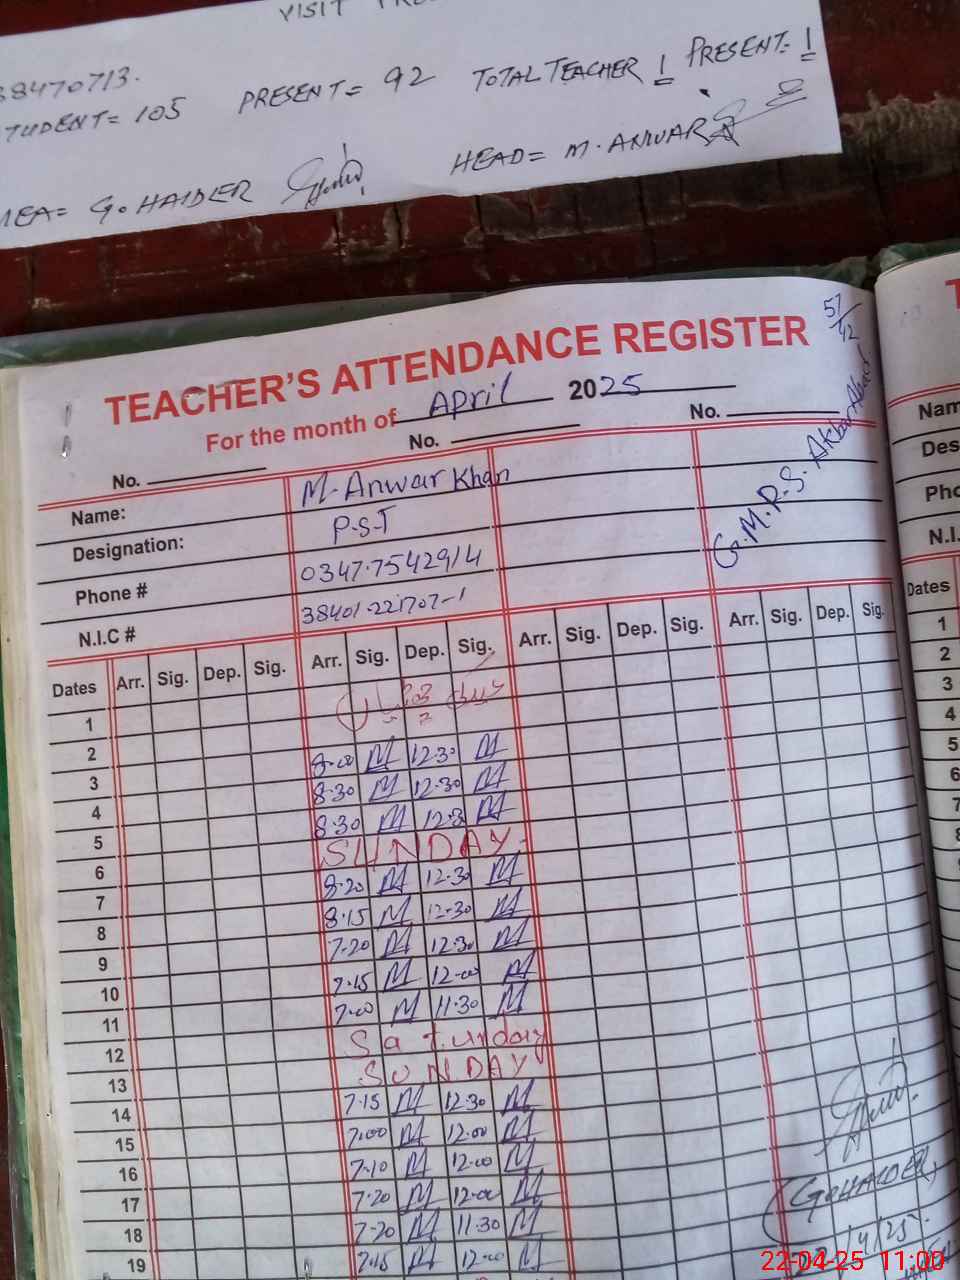 VISIT
38470713.
STUDENT= 105 PRESENT= 92 TOTAL TEACHER 1 PRESENT= 1
MEA= G. HAIDER HEAD= M. ANWAR
TEACHER'S ATTENDANCE REGISTER
51/42
For the month of April 2025
No. No. No.
Name: M. Anwar Khan
Designation: P.S.T
Phone # 0347.7542914
N.I.C # 38401-221707-1
G.M.P.S. Akbar Abad
Dates Arr. Sig. Dep. Sig. Arr. Sig. Dep. Sig. Arr. Sig. Dep. Sig. Arr. Sig. Dep. Sig.
1
2 8.00 M 12.30 M
3 8.30 M 12.30 M
4 8.30 M 12.3 M
5 SUNDAY
6 8.20 M 12.30 M
7 8.15 M 12.30 M
8 7.20 M 12.30 M
9 7.15 M 12.00 M
10 7.00 M 11.30 M
11 Saturday
12 SUNDAY
13 7.15 M 12.30 M
14 7.00 M 12.00 M
15 7.10 M 12.00 M
16 7.20 M 12.00 M
17 7.20 M 11.30 M
18 7.15 M 12.00 M
19
G. HAIDER
/4/25.
T
Nam
Des
Pho
N.I.
Dates
1
2
3
4
5
6
7
8
22-04-25 11:00